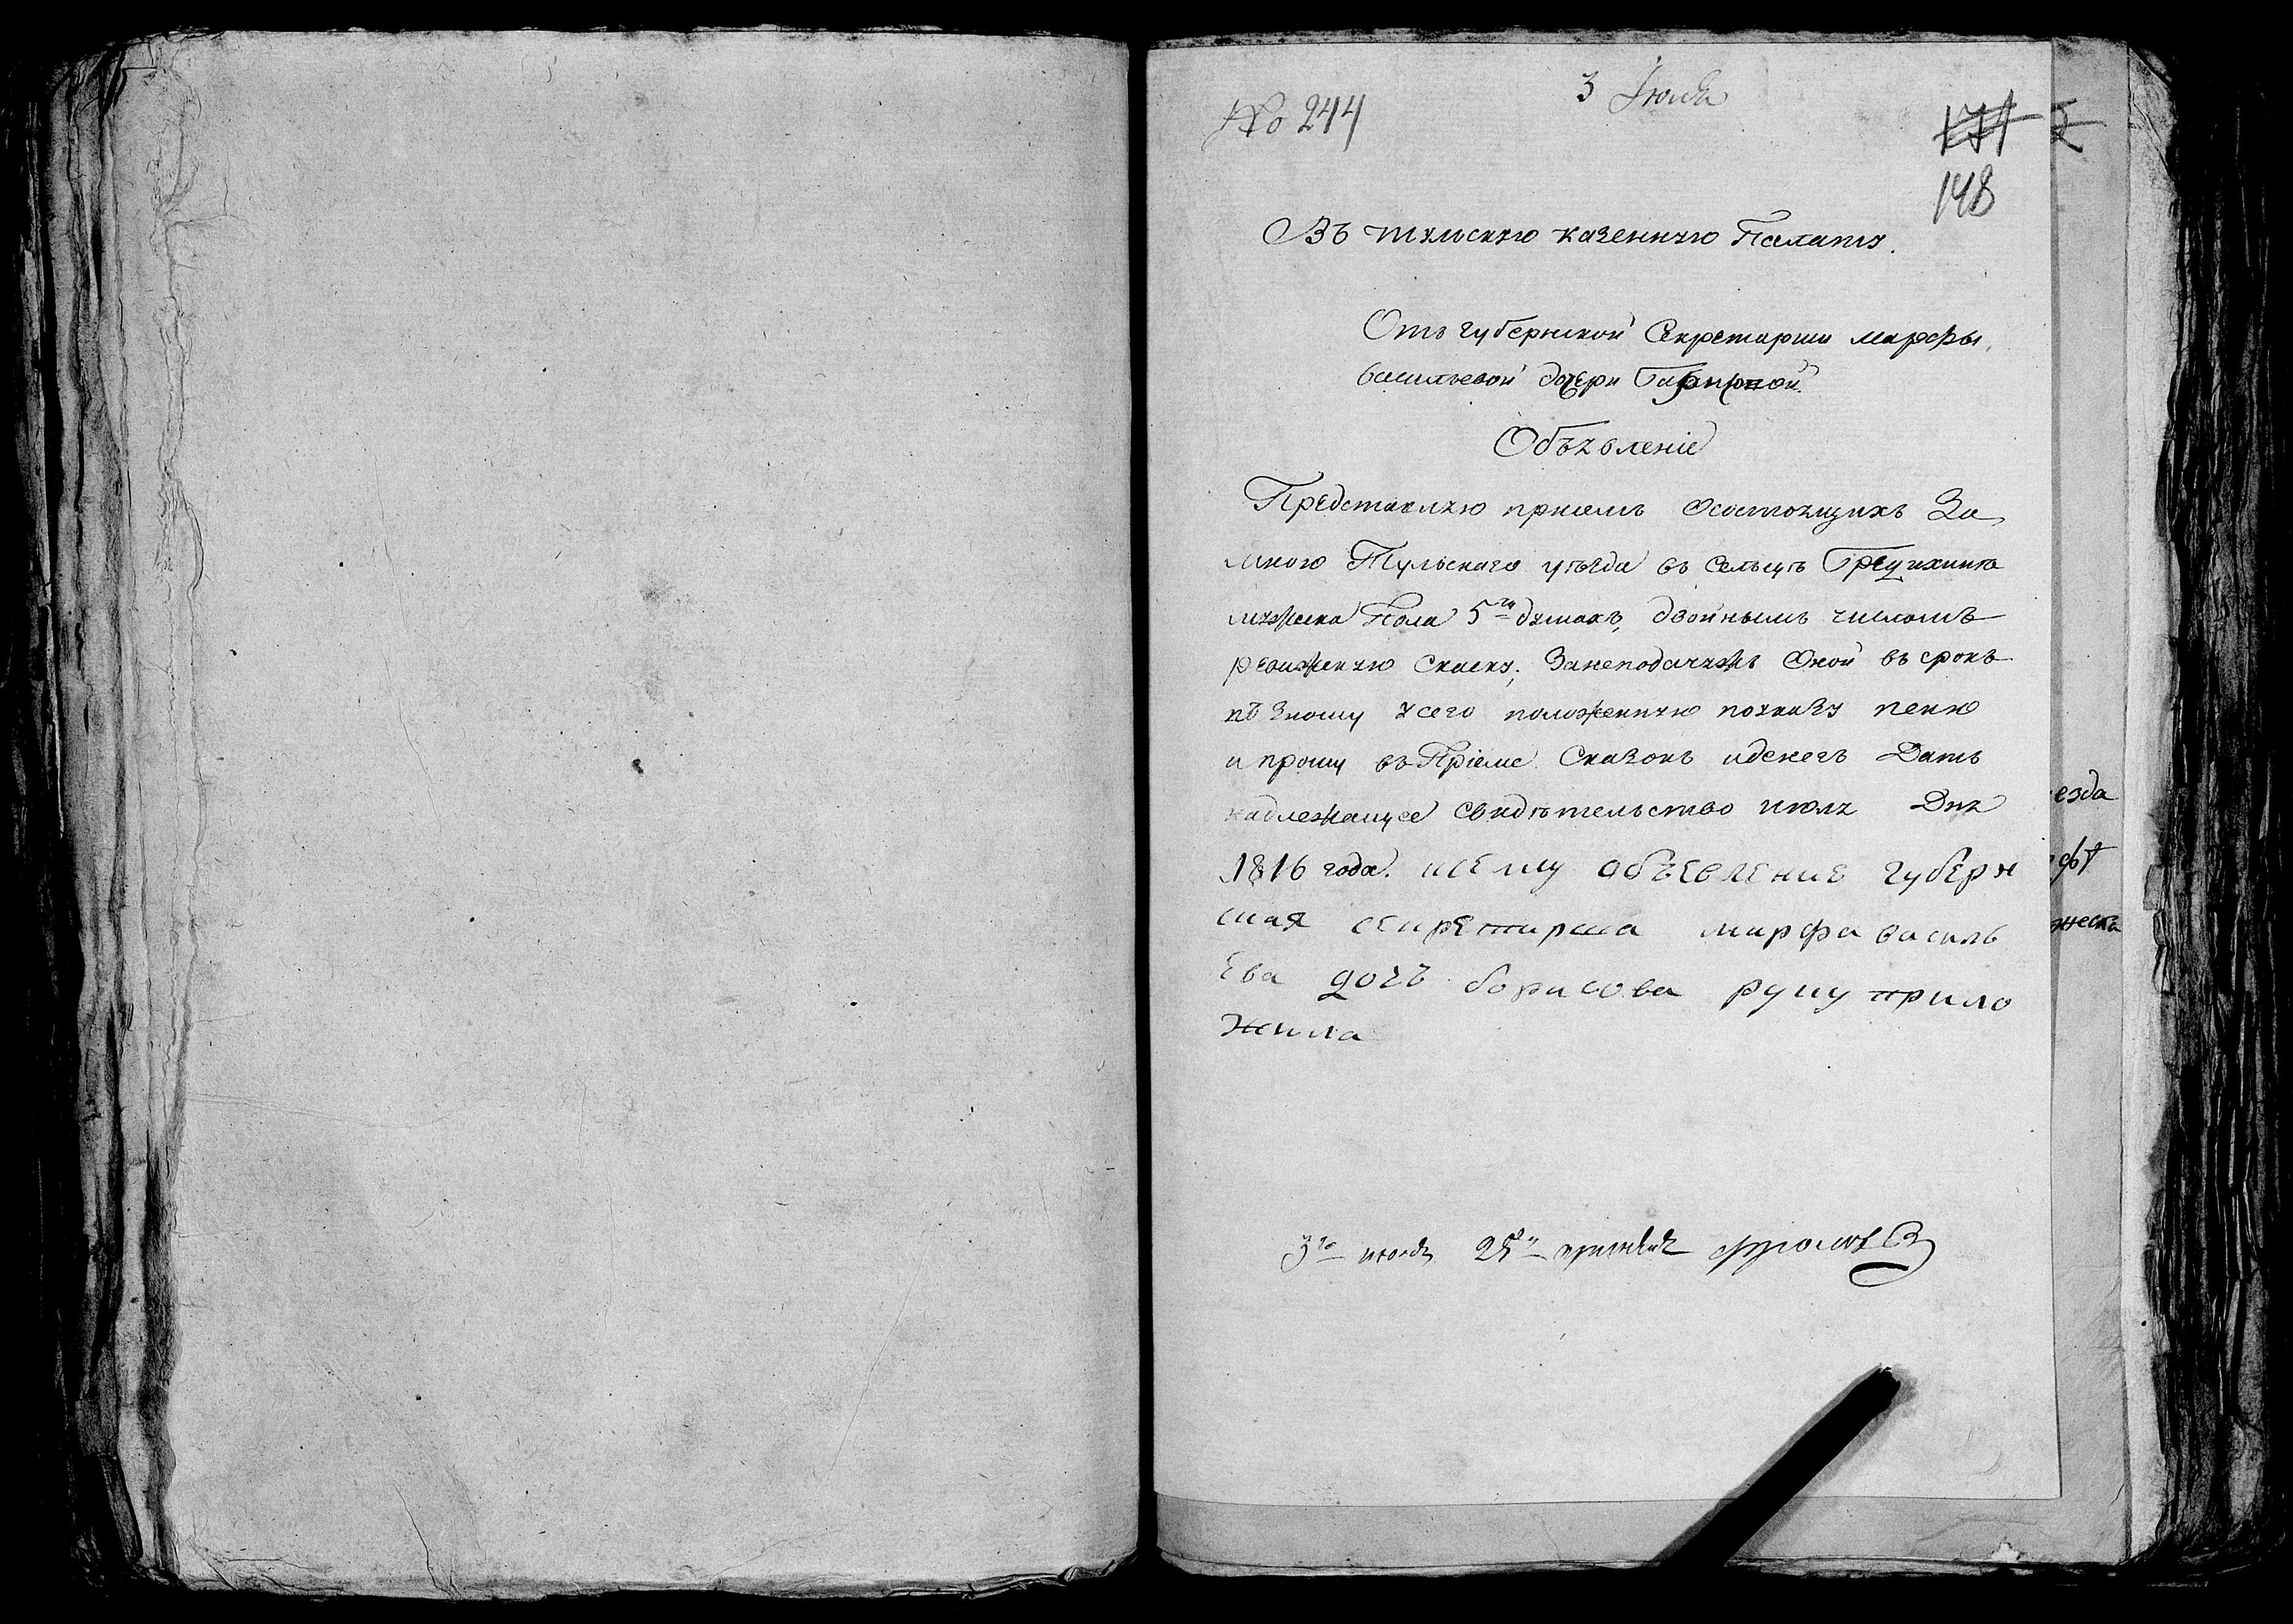 3 Июля
№ 244
171
2
148
Въ тульскую казенную Палату.
Отъ губернской Секретарши марфы
васильевой дочери
Объявленіе
Представляю присемъ осостоящихъ За
мною Тульскаго уѣзда въ сельцѣ Гречихинѣ
мужска Пола 5ти душахъ, двойнымъ числомъ
ревижскую скаску, Занеподачужъ Оной въ срокъ
и прошу въ Пріеме Сказокъ иденегъ Дать
надлежащее свидѣтельство июля Дня
1816 года. ксему объевление губерн
ская секретарша марфа василь
ева дочь борисова руку прило
жила
3го июля
езда
фѣ
жеска